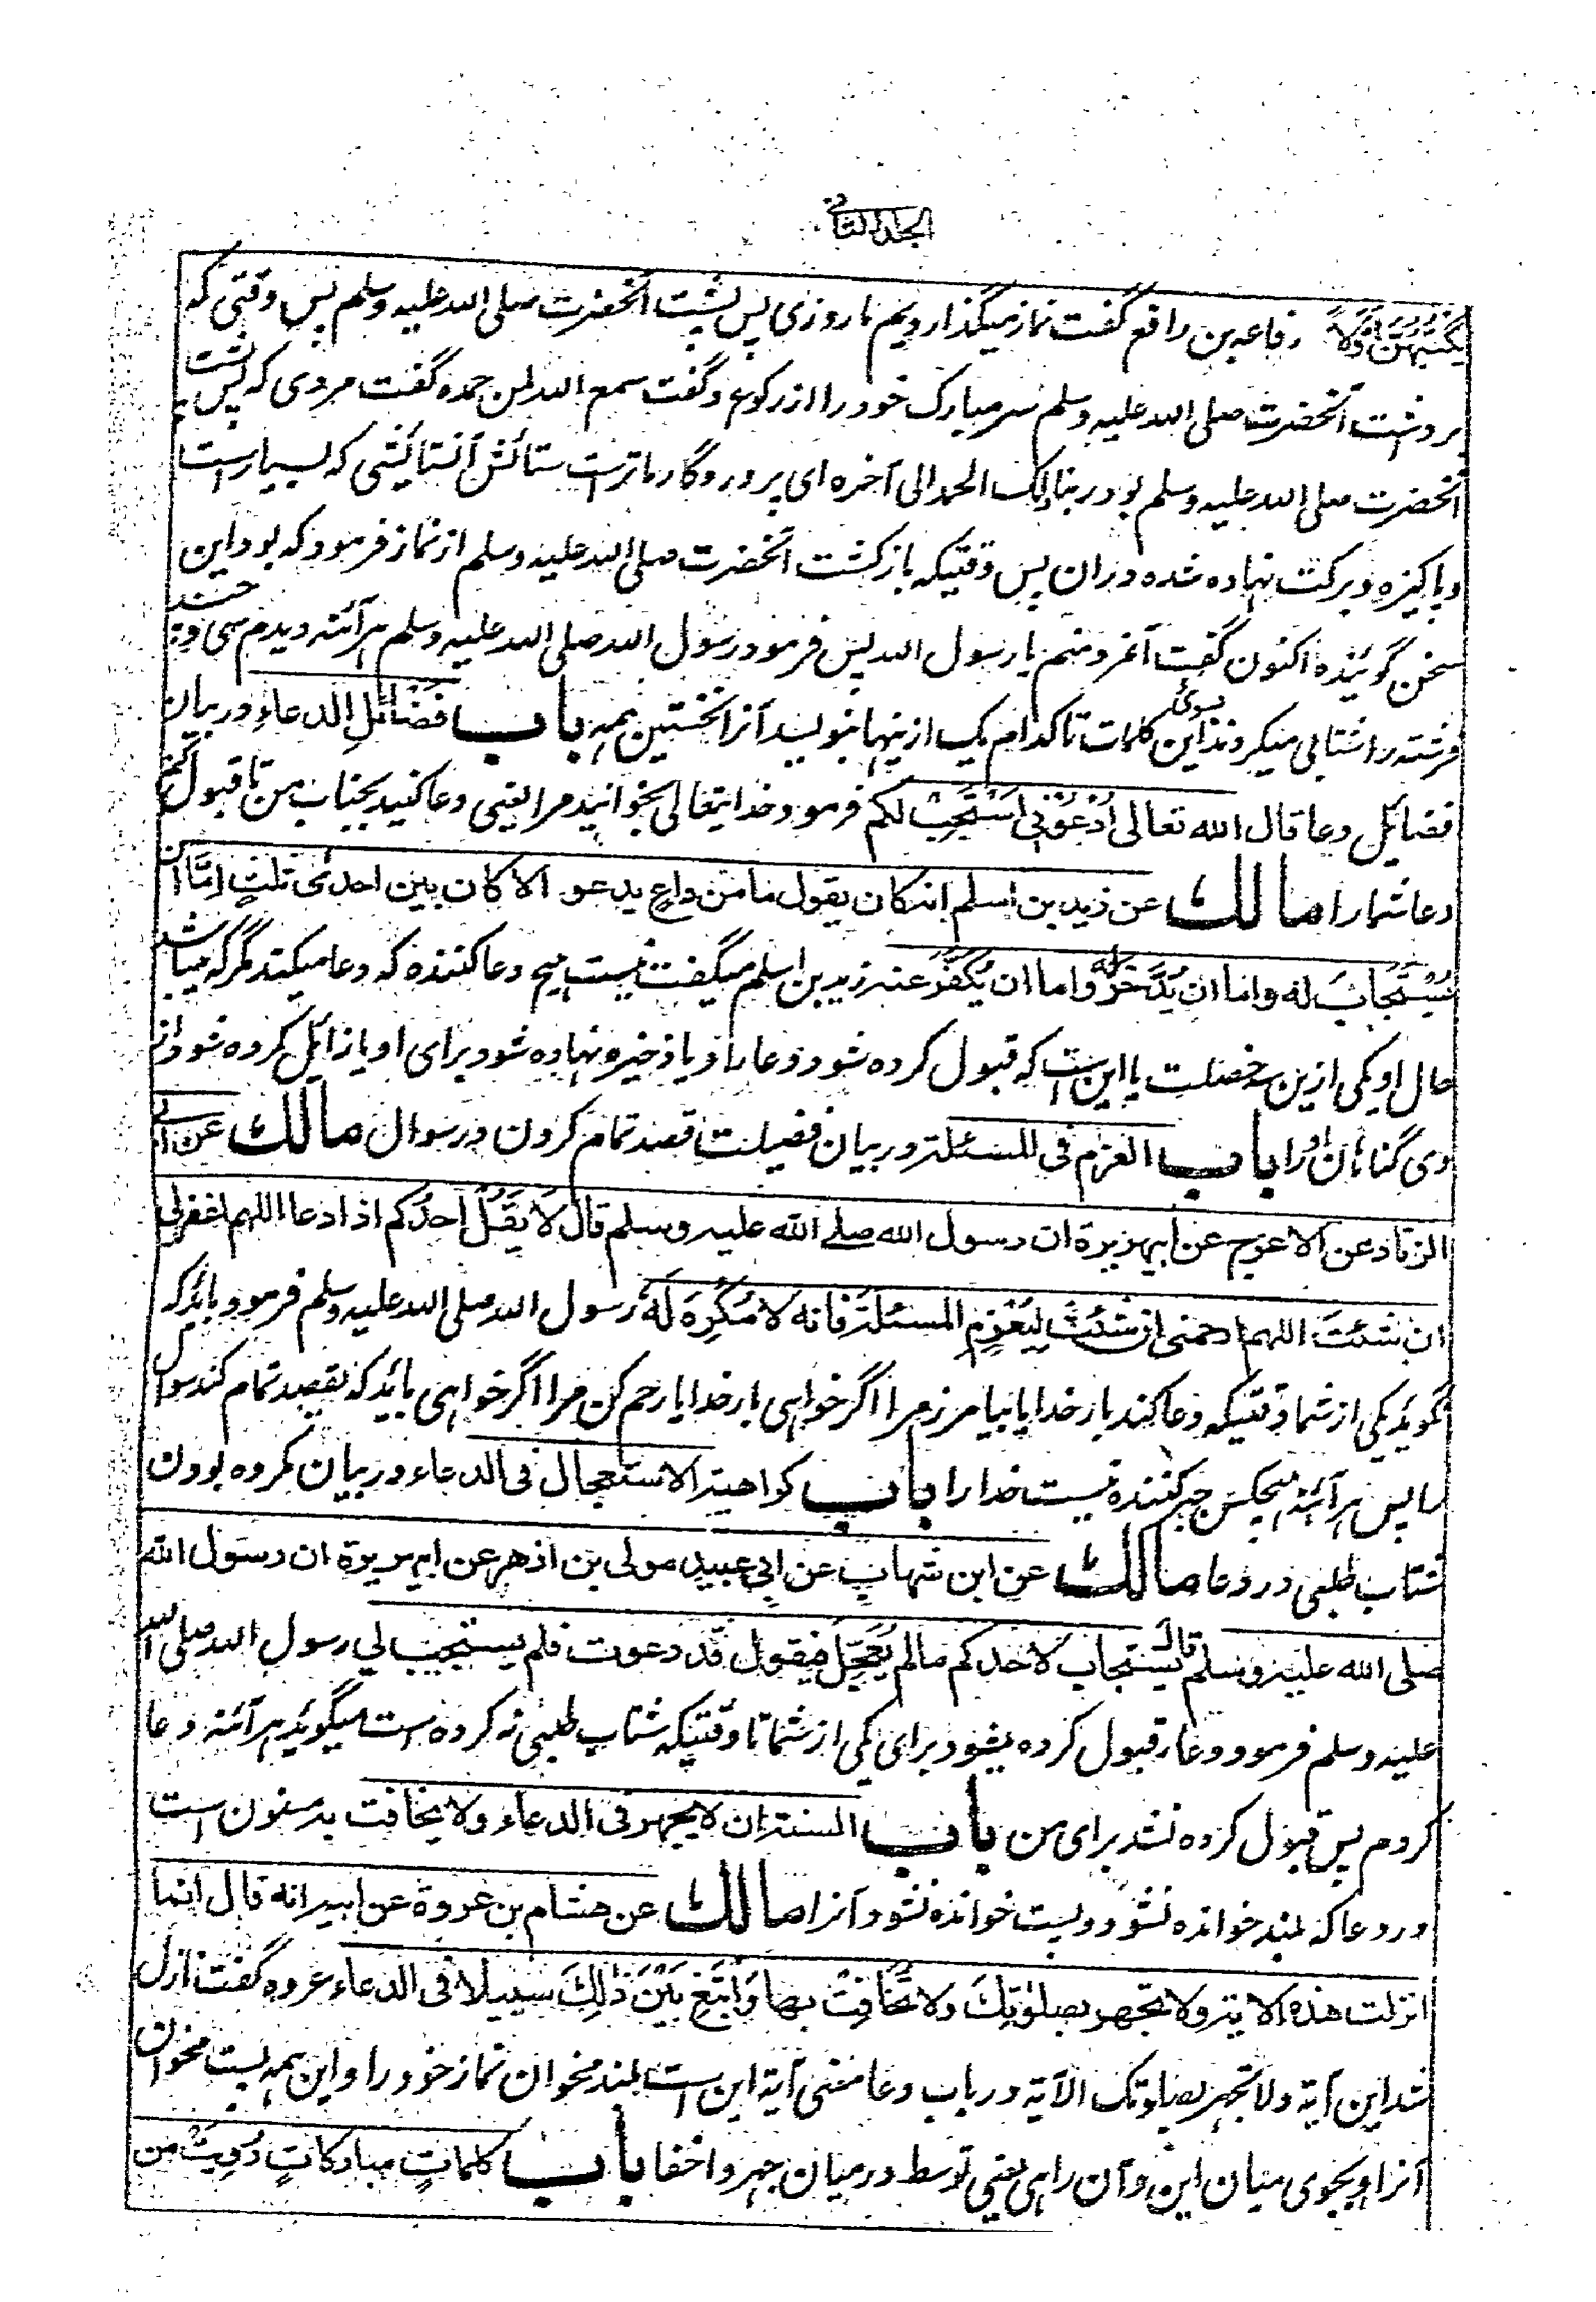 الجلد الثانی
یکتبهن اولا رفاعه بن رافع گفت نماز میگذاردیم ما روزی پس پشت آنحضرت صلی الله علیه وسلم پس وقتی که
برداشت آنحضرت صلی الله علیه وسلم سر مبارک خود را از رکوع و گفت سمع الله لمن حمده گفت مردی که پس پشت
آنحضرت صلی الله علیه وسلم بود ربنا ولک الحمد الی آخره ای پروردگار ما تراست ستائش آنستایشی که بسیار است
و پاکیزه و برکت نهاده شده دران پس وقتیکه بازگشت آنحضرت صلی الله علیه وسلم از نماز فرمود که بود این
سخن گوینده اکنون گفت آنمرد منم یا رسول الله پس فرمود رسول الله صلی الله علیه وسلم هر آئنه دیدم سی و چند
فرشته را شتابی میکردند بسوئ این کلمات تا کدام یک از ینها بنویسد آنرا نخستین همه باب فَضَائلِ الدعاءِ در بیان
فضائل دعا قال الله تعالی اُدْعُوْنِی اَسْتَجِبْ لکم فرمود خدایتعالی بخوانید مرا یعنی دعا کنید بجناب من تا قبول کنم
دعا شما را مالك عن زید بن اسلم انه کان یقول ما من داعٍ یدعو الا کان بین احدی ثلثٍ اِمَّا ان
یُسْتَجَابَ له واما ان یُدَّخَرَ له واما ان یُکَفَّرَ عنه زید بن اسلم میگفت نیست هیچ دعا کننده که دعا میکند مگر که میباشد
حال او یکی ازین سه خصلت یا این ست که قبول کرده شود دعا را و یا ذخیره نهاده شود برای او یا زائل کرده شود از
وی گناهان او را باب العزم فی المسئلة در بیان فضیلت قصد تمام کردن در سوال مالك عن ابی
الزناد عن الاعرج عن ابیهریرة ان رسول الله صلے الله علیه وسلم قال لا یَقُلْ احدُکم اذا دعا اللهم اغفرلی
ان شئتَ اللهم ارحمنی ان شئتَ لِیَعْزِمِ المسئلة فانه لا مُکْرِهَ لَهُ رسول الله صلی الله علیه وسلم فرمود باید که
نگوید یکی از شما وقتیکه دعا کند بار خدایا بیامرز مرا اگر خواهی بار خدایا رحم کن مرا اگر خواهی باید که بقصد تمام کند سوال
را پس هر آئنه هیچکس جبر کننده نیست خدا را باب کراهیة الاستعجال فی الدعاء در بیان مکروه بودن
شتاب طلبی در دعا مالك عن ابن شهاب عن ابی عبید مولی بن ازهر عن ابیهریرة ان رسول الله
صلی الله علیه وسلم قال یستجاب لاحدکم مالم یُعَجِّلْ فیقول قد دعوت فلم یستجب لی رسول الله صلی الله
علیه وسلم فرمود دعا قبول کرده میشود برای یکی از شما تا وقتیکه شتاب طلبی نه کرده است میگوید هر آئنه دعا
کردم پس قبول کرده نشد برای من باب السنة ان لا یجهر فی الدعاء ولا یخافت به مسنون است
در دعا که بلند خوانده نشود و پست خوانده نشود آنرا مالك عن هشام بن عروة عن ابیه انه قال انما
انزلت هذه الایة ولا تجهر بصلٰوتِكَ ولا تُخَافِتْ بها وَابْتَغِ بَیْنَ ذٰلِكَ سبیلا فی الدعاء عروه گفت نازل
شد این آیة ولا تجهر بصلوتک الآیة در باب دعا معنی آیة این است بلند مخوان نماز خود را و این همه پست مخوان
آنرا و بجوی میان این و آن راهی یعنی توسط در میان جهر و اخفا باب کلماتٍ مبارکاتٍ رُوِیَتْ من